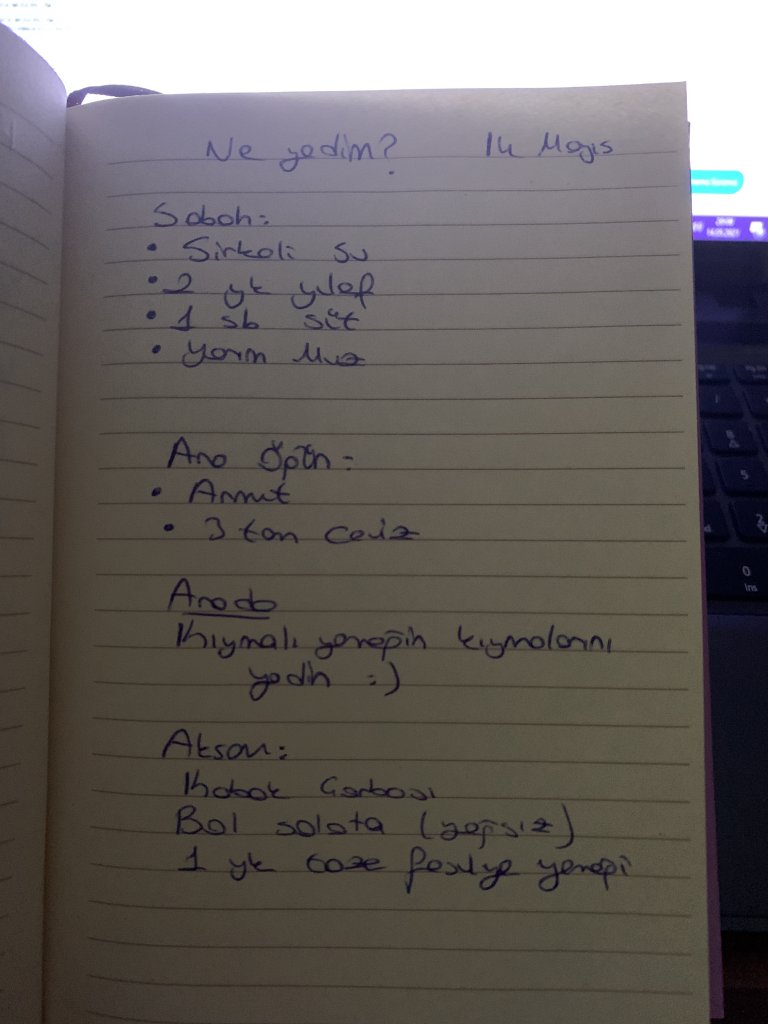 Ne yedim? 14 Mayıs
Sabah:
• Sirkeli su
• 2 yk yulaf
• 1 sb süt
• Yarım Muz
Ara Öğün:
• Armut
• 3 tan ceviz
Arada
Kıymalı yemeğin kıymalarını
yedim :)
Akşam:
Kabak Çorbası
Bol salata (yağsız)
1 yk taze fasulye yemeği